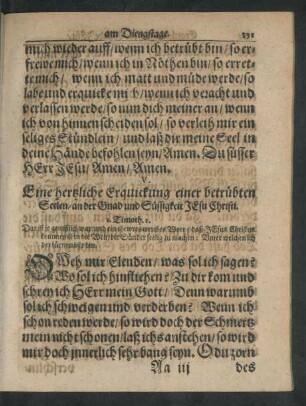 am Diengstage. 231
mich wieder auff / wenn ich betrübt bin / so er-
frewe mich / wenn ich in Nöthen bin / so erret-
te mich / wenn ich matt und müde werde / so
labe und erquicke mich / wenn ich veracht und
verlassen werde / so nim dich meiner an / wenn
ich von hinnen scheiden sol / so verleih mir ein
seliges Stündlein / und laß dir meine Seel in
deine Hände befohlen seyn / Amen. Du süsser
HErr JEsu / Amen / Amen.
Eine hertzliche Erquickung einer betrübten
Seelen / an der Gnad und Süssigkeit JEsu Christi.
1. Timoth. 1.
Das ist je gewißlich war und ein thewer werthes Wort / daß JEsus Christus
kommen ist in die Welt die Sünder seelig zu machen / Unter welchen ich
der fürnembste bin.
O Weh mir Elenden / was sol ich sagen?
Wo sol ich hinfliehen? Zu dir kom und
schrey ich HErr mein Gott / Denn warumb
sol ich schweigen und verderben? Wenn ich
schon reden werde / so wird doch der Schmertz
mein nicht schonen / laß ichs anstehen / so wird
mir doch innerlich sehr bang seyn. O du zorn
Aa iij des